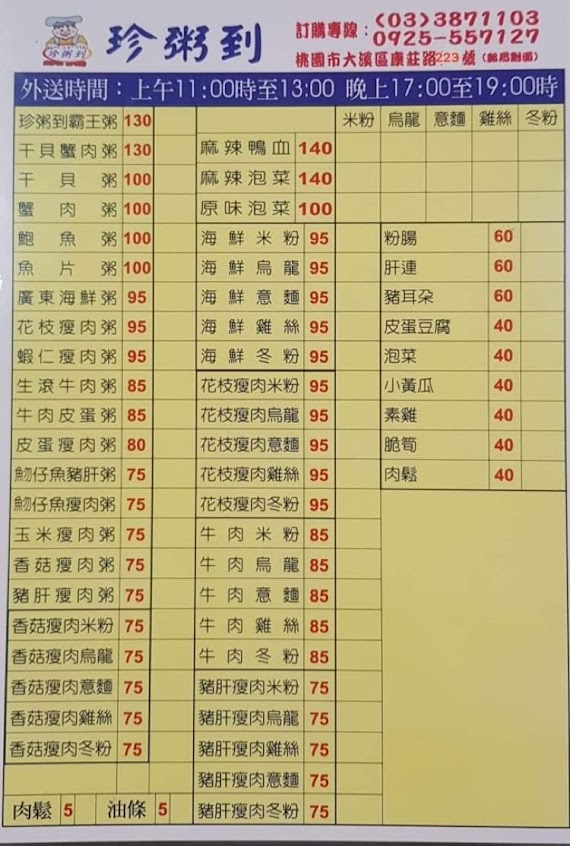 珍粥到
訂購專線：(03)3871103
0925-557127
桃園市大溪區康莊路223號(郵局對面)
外送時間：上午11:00時至13:00 晚上17:00至19:00時
珍粥到霸王粥 130
干貝蟹肉粥 130
干貝粥 100
蟹肉粥 100
鮑魚粥 100
魚片粥 100
廣東海鮮粥 95
花枝瘦肉粥 95
蝦仁瘦肉粥 95
生滾牛肉粥 85
牛肉皮蛋粥 85
皮蛋瘦肉粥 80
魩仔魚豬肝粥 75
魩仔魚瘦肉粥 75
玉米瘦肉粥 75
香菇瘦肉粥 75
豬肝瘦肉粥 75
香菇瘦肉米粉 75
香菇瘦肉烏龍 75
香菇瘦肉意麵 75
香菇瘦肉雞絲 75
香菇瘦肉冬粉 75
肉鬆 5 油條 5
米粉 烏龍 意麵 雞絲 冬粉
麻辣鴨血 140
麻辣泡菜 140
原味泡菜 100
海鮮米粉 95
海鮮烏龍 95
海鮮意麵 95
海鮮雞絲 95
海鮮冬粉 95
花枝瘦肉米粉 95
花枝瘦肉烏龍 95
花枝瘦肉意麵 95
花枝瘦肉雞絲 95
花枝瘦肉冬粉 95
牛肉米粉 85
牛肉烏龍 85
牛肉意麵 85
牛肉雞絲 85
牛肉冬粉 85
豬肝瘦肉米粉 75
豬肝瘦肉烏龍 75
豬肝瘦肉雞絲 75
豬肝瘦肉意麵 75
豬肝瘦肉冬粉 75
粉腸 60
肝連 60
豬耳朵 60
皮蛋豆腐 40
泡菜 40
小黃瓜 40
素雞 40
脆筍 40
肉鬆 40